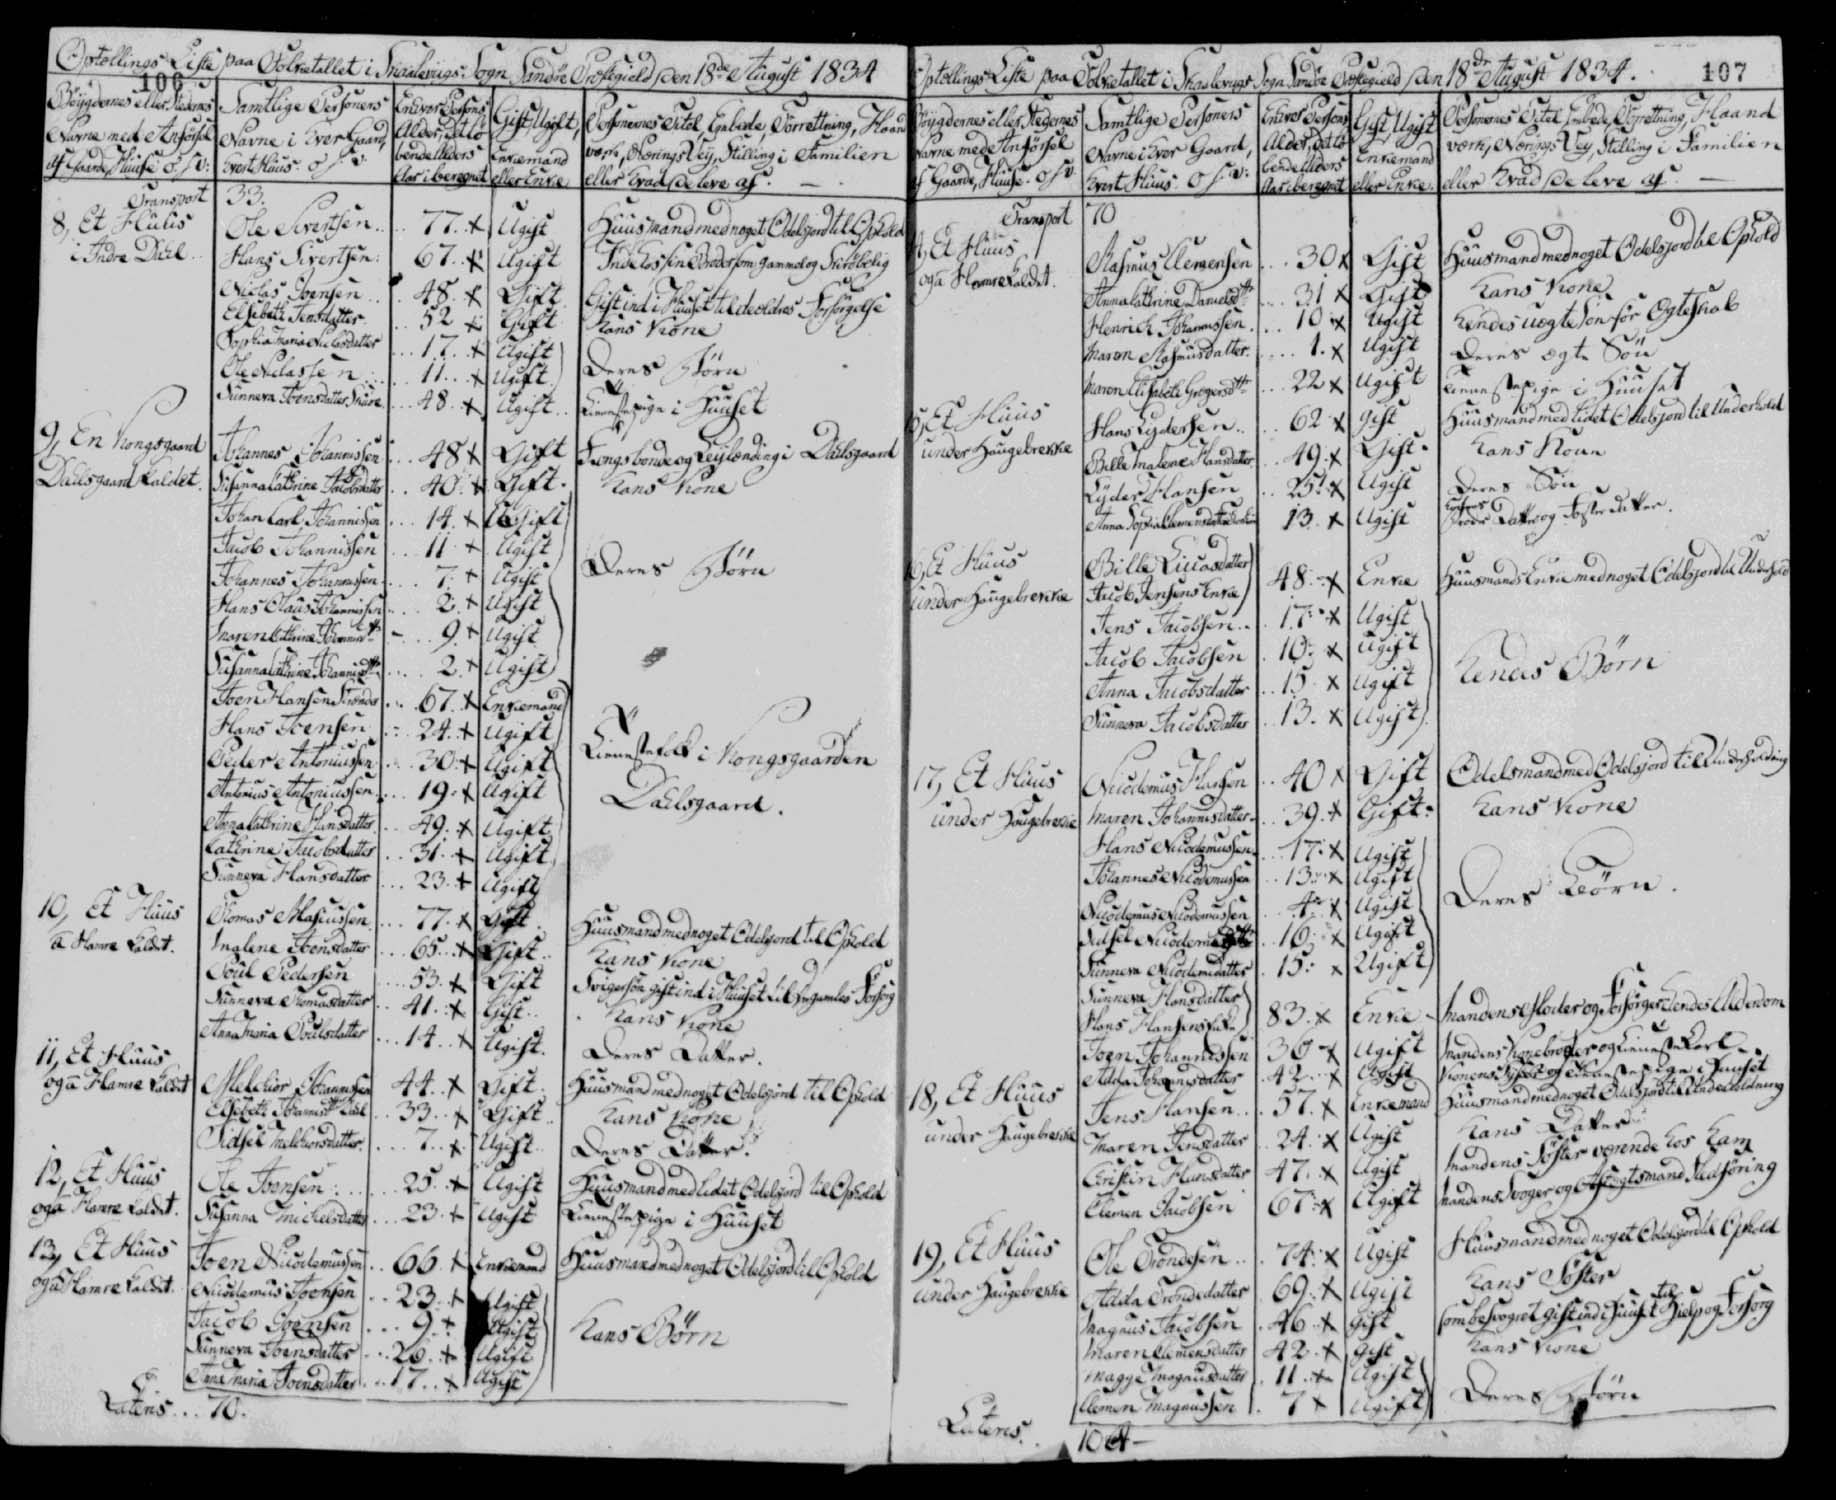 Optællings Liste paa Folketallet i Skaalevigs Sogn Sandöe Præstegield den 18de August 1834
106
Böÿgdernes eller Stedernes Navne med Anförsel af Gaarde, Huuse o: s: v:
Samtlige Personers Navne i hver Gaard, hvert Huus o s v.
Enhver Persons Alder, det löbende Alders Aar iberegnet
Gift, Ugift, Enkemand eller Enke
Personernes Titel, Embede, Forrettning, Haandværk, Nærings Veÿ, Stilling i Familien eller hvad de leve af. —
Transport 33.
8, Et Huus i Indre Dahl
Ole Sivertsen 77 x Ugift Huusmand med noget Odelsjord til Ophold
Hans Sivertsen 67 x Ugift Broder som gammel og
Niclas Joensen 48 x Gift Gift ind i Huuset til de oldres Forsörgelse
Elsebeth Jensdatter 52 x Gift Hans Kone
Sophia Maria Niclasdatter 17 x Ugift
Ole Niclassen 11 x Ugift Deres Börn
Sunneva Joensdatter 48 x Ugift Tienestepige i Huuset
9, En Kongsgaard Dahlsgaard kaldet.
Johannes Johannissen 48 x Gift Kongsbonde og i Dahlsgaard
Susanna Cathrine Jacobsdatter 40 x Gift Hans Kone
Johan Carl Johannissen 14 x Ugift
Jacob Johannissen 11 x Ugift
Johannes Johannissen 7 x Ugift Deres Börn
Hans Claus Johannissen 2 x Ugift
Maren Cathrine Johannisdtr 9 x Ugift
Susanna Cathrine Johannisdtr 2 x Ugift
Joen Hansen 67 x Enkemand
Hans Joensen 24 x Ugift
Peder Antoniussen 30 x Ugift Tienestefolk i Kongsgaarden
Antonius Antoniussen 19 x Ugift Dahlsgaard.
Anna Cathrine Hansdatter 49 x Ugift
Cathrine Jacobsdatter 31 x Ugift
Sunneva Hansdatter 23 x Ugift
10, Et Huus a Hamre kaldet.
Thomas 77 x Gift Huusmand med noget Odelsjord til Ophold
Malene Joensdatter 65 x Gift Hans Kone
Poul Pedersen 53 x Gift Svigersön gift ind i Huuset til Forsörg
Sunneva Thomasdatter 41 x Gift Hans Kone
Anna Maria Poulsdatter 14 x Ugift Deres Datter.
11, Et Huus og a Hamre kaldet
Melchior Johannissen 44 x Gift Huusmand med noget Odelsjord til Ophold
Elsebeth Johannisdtr 33 x Gift Hans Kone
Sidsel Melchiorsdatter 7 x Ugift Deres Datter.
12, Et Huus og a Hamre kaldet.
Ole Joensen 25 x Ugift Huusmand med lidet Odelsjord til Ophold
Susanna Mickelsdatter 23 x Ugift Tienestepige i Huuset
13, Et Huus og a Hamre kaldet.
Joen Nicodemussen 66 x Enkemand Huusmand med noget Odelsjord til Ophold
Nicodemus Joensen 23 x Ugift
Jacob Joensen 9 x Ugift Hans Börn
Sunneva Joensdatter 26 x Ugift
Anna Maria Joensdatter 17 x Ugift
Lateris 70.
Optællings Liste paa Folketallet i Skaalevigs Sogn Sandöe Præstegield den 18de August 1834.
107
Böygdernes eller Stedernes Navne med Anförsel af Gaarde, Huuse o s v.
Samtlige Personers Navne i hver Gaard, hvert Huus o s v:
Enhver Persons Alder, det löbende Alders Aar iberegnet
Gift, Ugift Enkemand eller Enke.
Personernes Titel, Embede, Forrettning, Haandværk, Nærings Vey, Stilling i Familien eller hvad de leve af. —
Transport 70
14, Et Huus og a Hamre kaldet.
Rasmus Clemensen 30 x Gift Huusmand med noget Odelsjord til Ophold
Anna Cathrine Danielsdtr 31 x Gift Hans Kone
Henrich Johannissen 10 x Ugift Hendes uægte Sön för Ægteskab
Maren Rasmusdatter 1 x Ugift Deres ægte Sön
Maren Elisabeth Gregersdtr 22 x Ugift Tienestepige i Huuset
15, Et Huus under Haugebrekke
Hans Lydersen 62 x Gift Huusmand med lidet Odelsjord til Underhold
Bille Malene Hansdatter 49 x Gift Hans Kone
Lyder Hansen 25 x Ugift Deres Sön
Anna Sophia Clemensdatter 13 x Ugift Datter og Foster Datter.
16, Et Huus under Haugebrekke
Bille Lucasdatter Jacob Jensens Enke 48 x Enke Huusmands Enke med noget Odelsjord til Underhold
Jens Jacobsen 17 x Ugift
Jacob Jacobsen 10 x Ugift Hendes Börn
Anna Jacobsdatter 15 x Ugift
Sunneva Jacobsdatter 13 x Ugift
17, Et Huus under Haugebrekke
Nicodemus Hansen 40 x Gift Odelsmand med Odelsjord til Underholdning
Maren Johannisdatter 39 x Gift Hans Kone
Hans Nicodemussen 17 x Ugift
Johannes Nicodemussen 13 x Ugift Deres Börn.
Nicodemus Nicodemussen 4 x Ugift
Sidsel 16 x Ugift
Sunneva Nicodemidatter 15 x Ugift
Sunneva Hansdatter Hans Hansens Enke 83 x Enke Mandens Moder og Forsörger hendes Alderdom
Joen Johannissen 36 x Ugift Mandens Konebroder og Tieneste Karl
Adda Johannisdatter 42 x Ugift Konens Söster og Tienestepige i Huuset
18, Et Huus under Haugebrekke
Jens Hansen 57 x Enkemand Huusmand med noget Odelsjord til Underholdning
Maren Jensdatter 24 x Ugift Hans Datter
Cristin Hansdatter 47 x Ugift Mandens Söster værende hos ham
Clemen Jacobsen 67 x Ugift Mandens Svoger og Aftægtsmand
19, Et Huus under Haugebrekke
Ole Trondesen 74 x Ugift Huusmand med noget Odelsjord til Ophold
Adda Trondedatter 69 x Ugift Hans Söster
Magnus Jacobsen 46 x Gift som besvogret gift ind i Huuset til Hielp og Forsörg
Maren Clemensdatter 42 x Gift Hans Kone
Magge Magnusdatter 11 x Ugift
Clemen Magnussen 7 x Ugift Deres Börn
Lateris 104 —